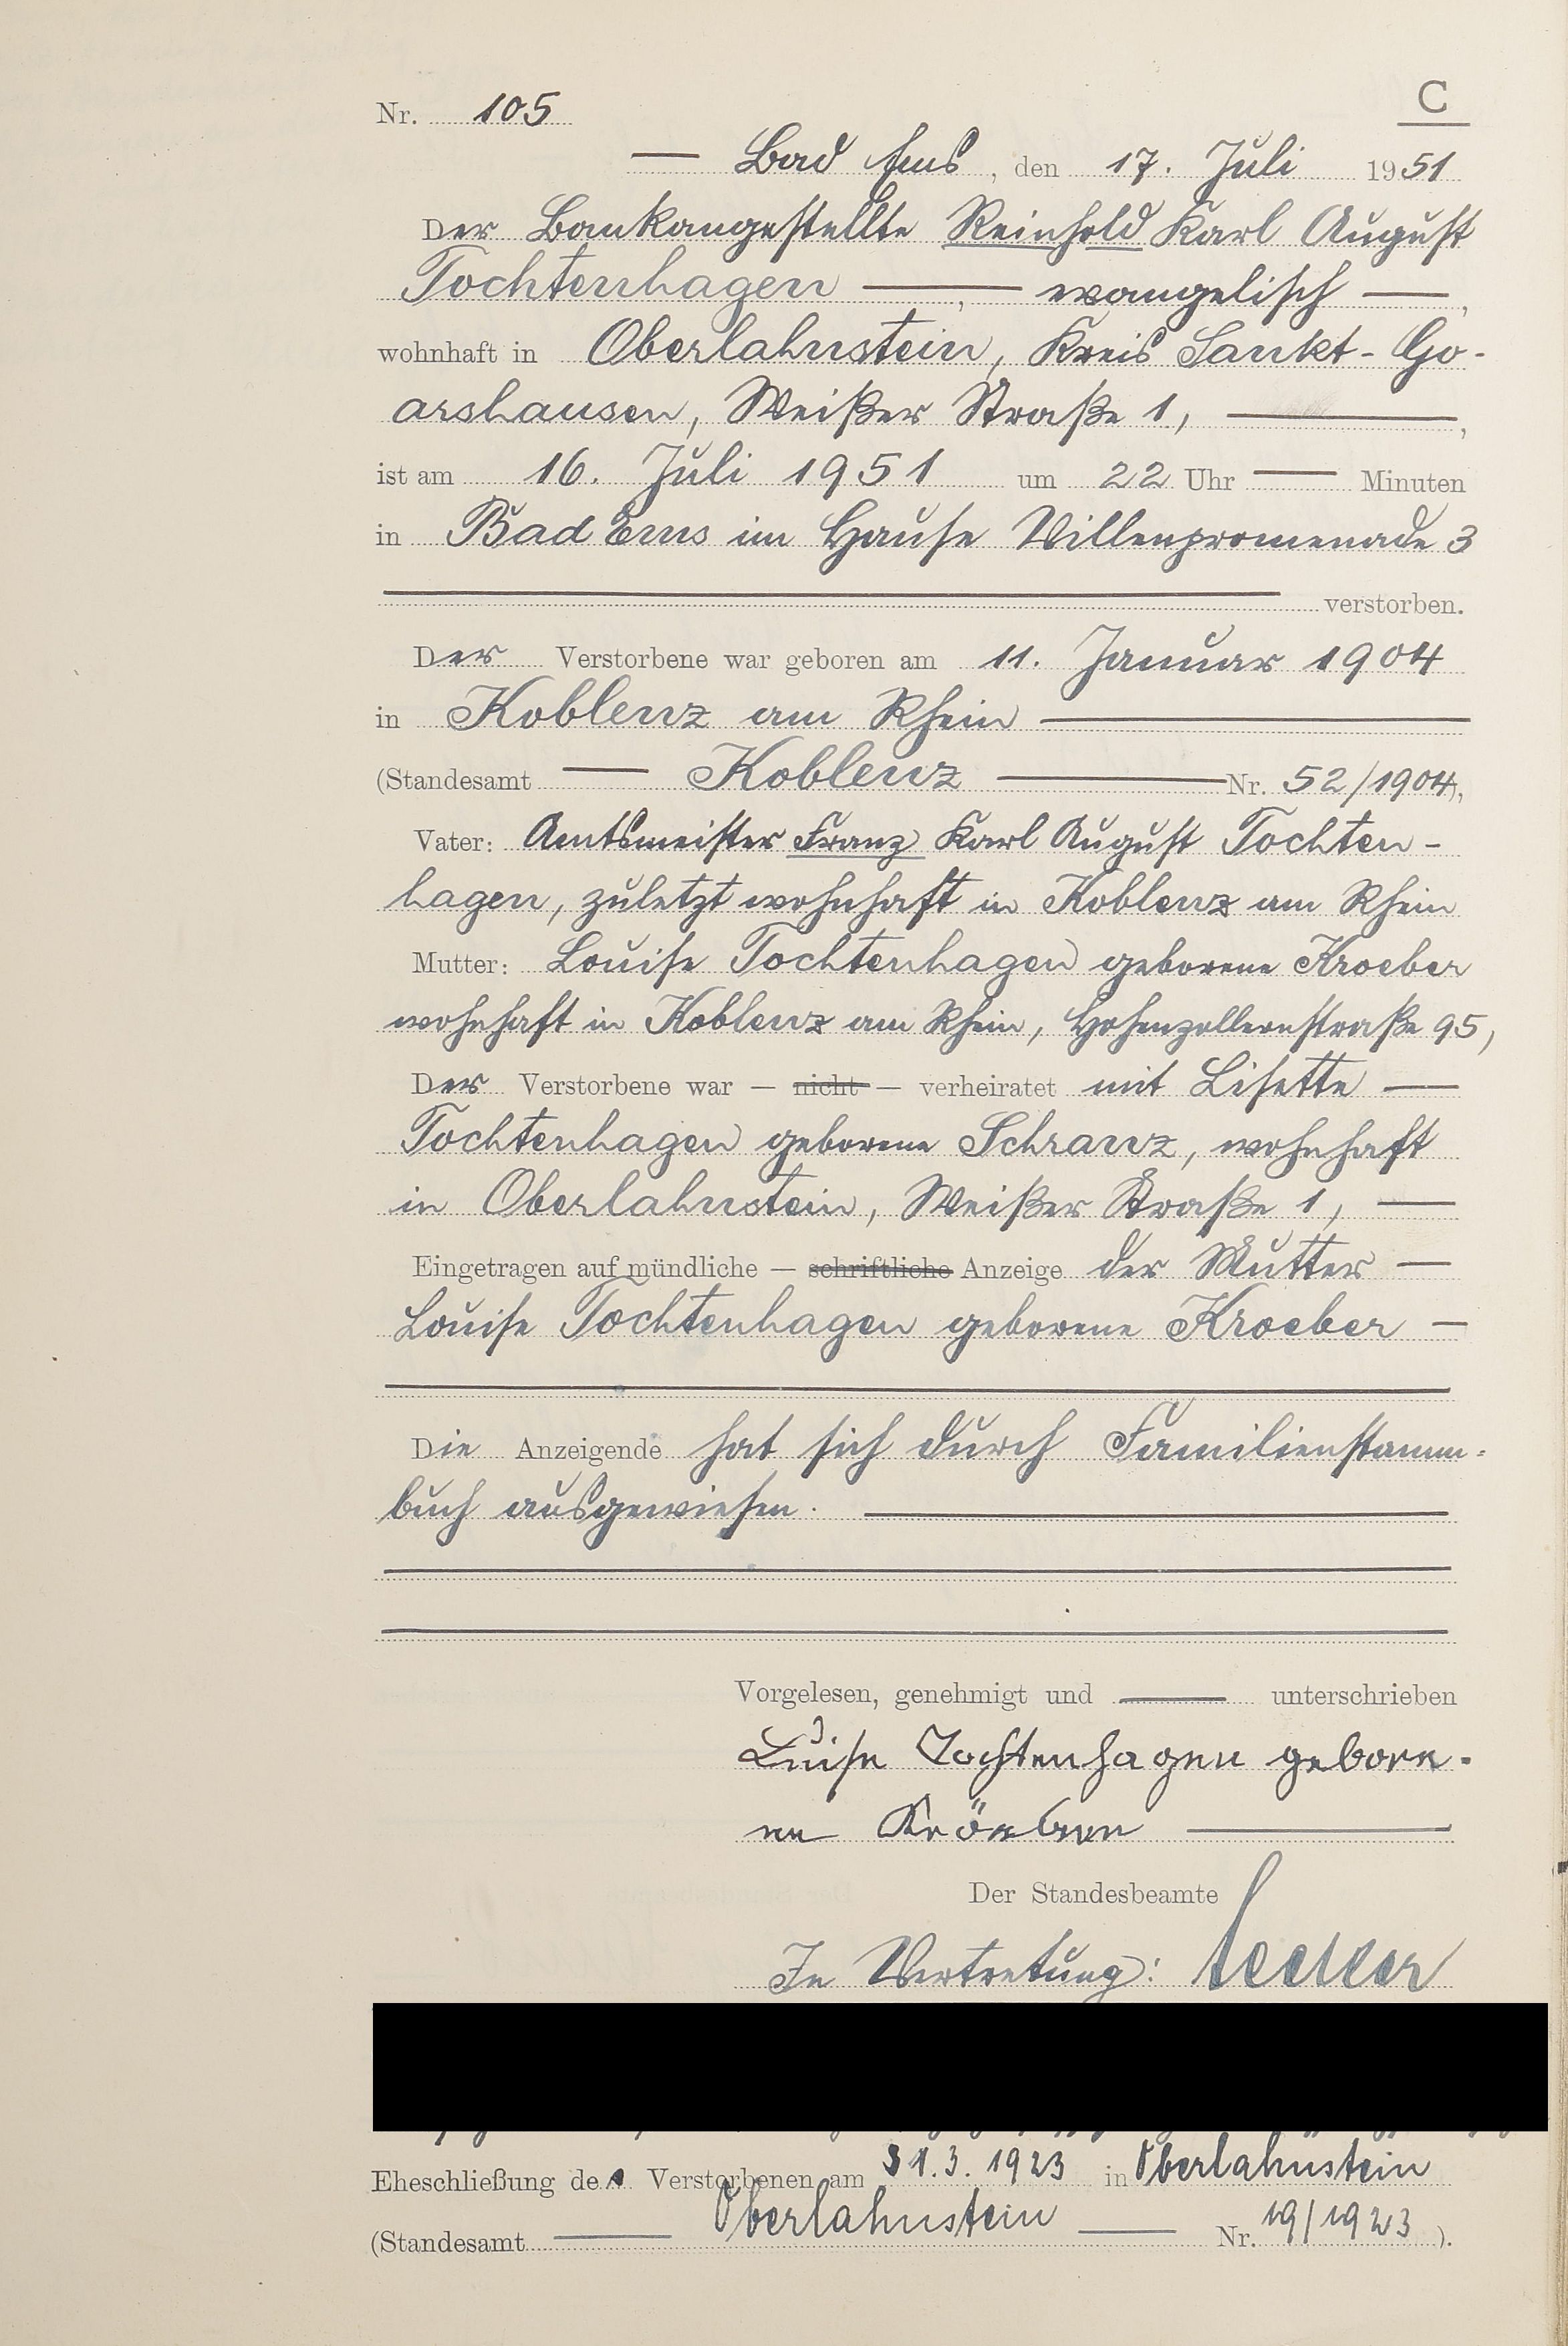 C
Nr. 105
— Bad Ems, den 17. Juli 1951
Der Bankangestellte Reinhold Karl August
Tochtenhagen —, — evangelisch —,
wohnhaft in Oberlahnstein, Kreis Sankt-Go-
arshausen, Weißer Straße 1, —,
ist am 16. Juli 1951 um 22 Uhr — Minuten
in Bad Ems im Hause Villenpromenade 3
— verstorben.
Der Verstorbene war geboren am 11. Januar 1904
in Koblenz am Rhein —
(Standesamt — Koblenz — Nr. 52/1904),
Vater: Amtsmeister Franz Karl August Tochten-
hagen, zuletzt wohnhaft in Koblenz am Rhein
Mutter: Louise Tochtenhagen geborene Kroeber
wohnhaft in Koblenz am Rhein, Hohenzollernstraße 95,
Der Verstorbene war — nicht — verheiratet mit Lisette —
Tochtenhagen geborene Schranz, wohnhaft
in Oberlahnstein, Weißer Straße 1, —
Eingetragen auf mündliche — schriftliche Anzeige der Mutter —
Louise Tochtenhagen geborene Kroeber —
Die Anzeigende hat sich durch Familienstamm-
buch ausgewiesen. —
Vorgelesen, genehmigt und — unterschrieben
Luise Tochtenhagen gebore-
ne —
Der Standesbeamte
In Vertretung:
Eheschließung des Verstorbenen am 31.3.1923 in Oberlahnstein
(Standesamt — Oberlahnstein — Nr. 19/1923).